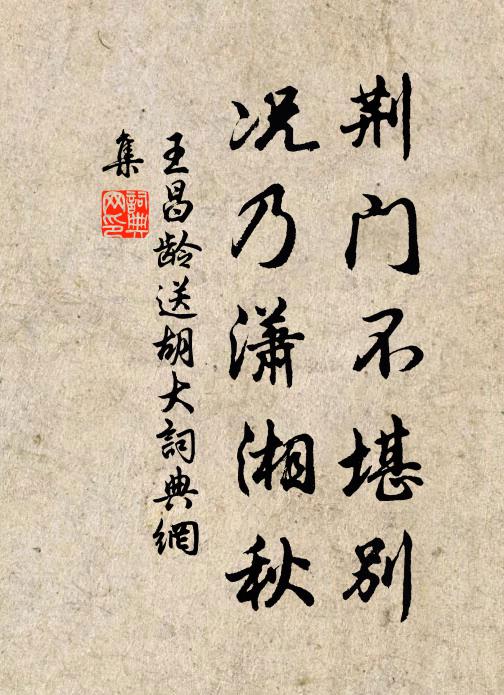 荆门不堪别
况乃潇湘秋
王昌龄送胡大詞典網
集
詞典
网印